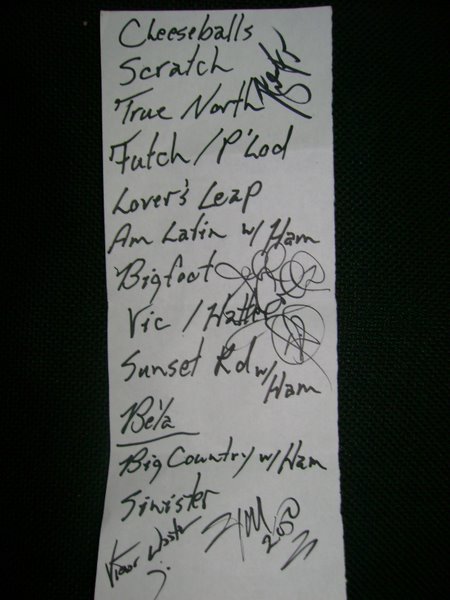 Cheeseballs
Scratch
True North
Futch / P'Lod
Lover's Leap
Am Latin w/ Ham
Bigfoot
Vic /
Sunset Rd w/ Ham
Bela
Big Country w/ Ham
Sinister
Victor Wooten